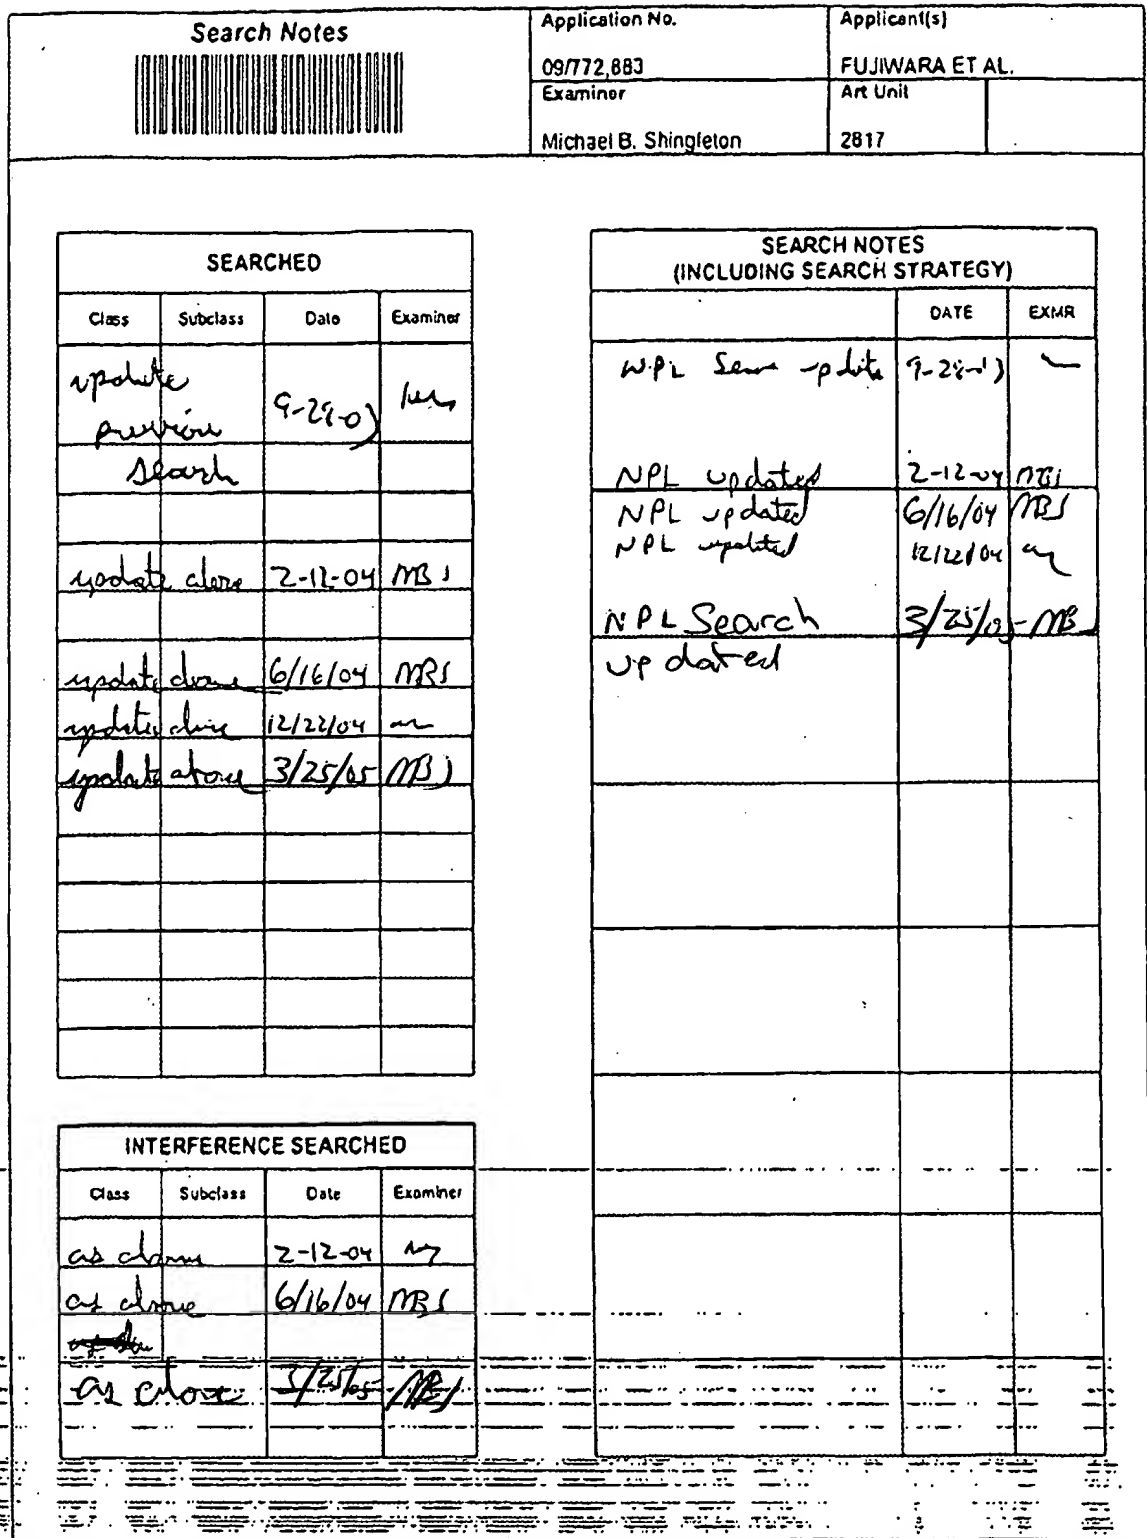 Search Notes
Application No.
09/772,883
Applicant(s)
FUJIWARA ET AL.
Examiner
Michael B. Shingleton
Art Unit
2817
SEARCHED
Class Subclass Date Examiner
update
previous
search
update above 2-12-04 MBS
update above 6/16/04 MBS
update above 12/22/04
update above 3/25/05 MBS
INTERFERENCE SEARCHED
Class Subclass Date Examiner
as above 2-12-04
as above 6/16/04 MBS
as above 3/25/05 MBS
SEARCH NOTES
(INCLUDING SEARCH STRATEGY)
DATE EXMR
NPL updated 2-12-04 MBS
NPL updated 6/16/04 MBS
NPL updated 12/22/04
NPL Search 3/25/05 MBS
updated